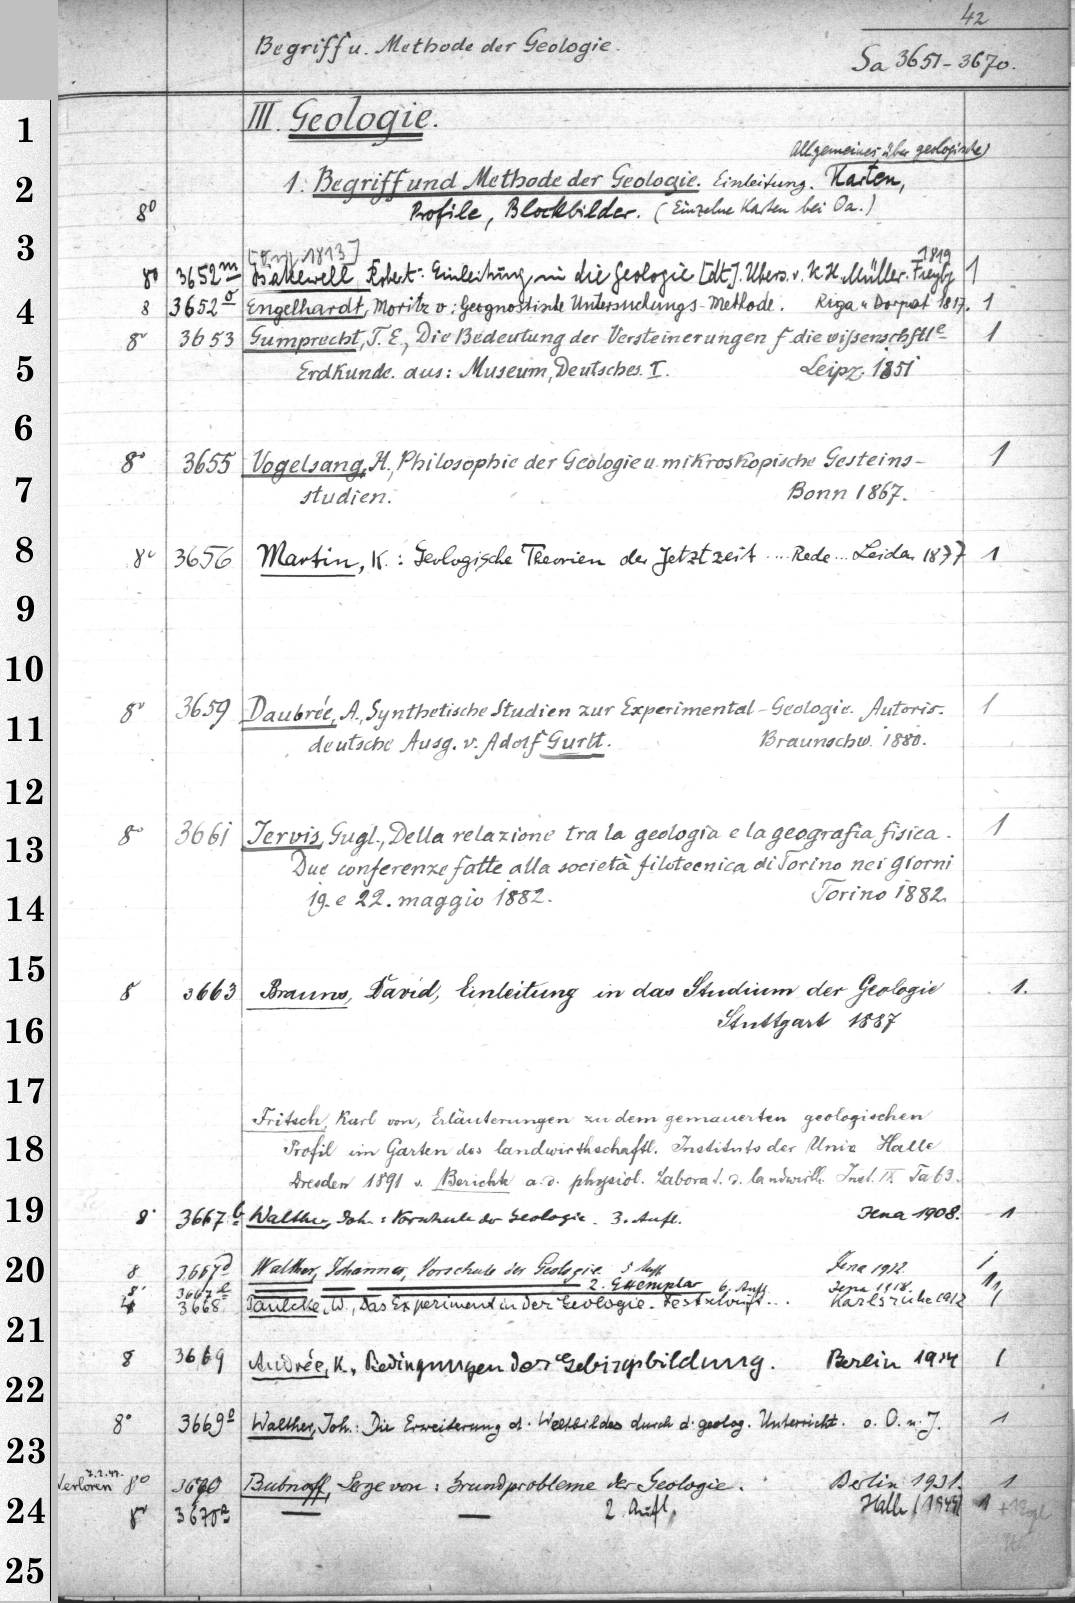 42
Begriff u. Methode der Geologie.
Sa 3651-3670.
1
III. Geologie.
Allgemeines über geologische
2
1. Begriff und Methode der Geologie. Einleitung. Karten,
8° Profile, Blockbilder. (Einzelne Karten bei Oa.)
3
1813] 1819
8° 3652m Bakewell Robert: Einleitung in die Geologie [dt]. Übers. v. K. H. Müller. Freyb 1
4
8 3652o Engelhardt, Moritz v: Geognostische Untersuchungs-Methode. Riga u Dorpat 1817. 1
8° 3653 Gumprecht, T. E., Die Bedeutung der Versteinerungen f. die wissenschftle 1
5
Erdkunde. aus: Museum, Deutsches. I. Leipz. 1851
6
8° 3655 Vogelsang, H., Philosophie der Geologie u. mikroskopische Gesteins- 1
7
studien. Bonn 1867.
8
8° 3656 Martin, K.: Geologische Theorien der Jetztzeit ... Rede... Leiden 1877 1
9
10
8° 3659 Daubrée, A., Synthetische Studien zur Experimental-Geologie. Autoris. 1
11
deutsche Ausg. v. Adolf Gurlt. Braunschw. 1880.
12
8° 3661 Jervis, Gugl., Della relazione tra la geologia e la geografia fisica. 1
13
Due conferenze fatte alla società filotecnica di Torino nei giorni
14
19. e 22. maggio 1882. Torino 1882.
15
8 3663 Brauns, David, Einleitung in das Studium der Geologie 1.
16
Stuttgart 1887
17
Fritsch, Karl von, Erläuterungen zu dem gemauerten geologischen
18
Profil im Garten des landwirthschaftl. Instituts der Univ. Halle
Dresden 1891 v. Berichte a. d. physiol. Laborat. d. landwirth. Inst. IX Ta 63.
19
8° 3667b Walther, Joh.: Vorschule der Geologie. 3. Aufl. Jena 1908. 1
20
8 3667d Walther, Johannes, Vorschule der Geologie 5 Aufl Jena 1912. 1
8° 3667e 2. Exemplar 6. Aufl Jena 1918. 1
4 3668 Paulcke, W., Das Experiment in der Geologie. Festschrift... Karlsruhe 1912 1
21
8 3669 Andrée, K., Bedingungen der Gebirgsbildung. Berlin 1914 1
22
8° 3669a Walther, Joh.: Die Erweiterung d. Weltbildes durch d. geolog. Unterricht. o. O. u. J. 1
23
Verloren 8° 3670 Bubnoff, Serge von: Grundprobleme der Geologie. Berlin 1931. 1
24
8° 3670a — — 2. Aufl. Halle (1949) 1
25